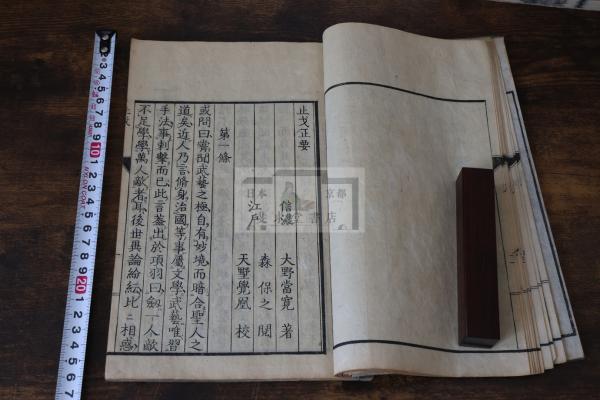 止戈正要
信濃 大野當寛 著
森 保之 閲
江戸 天墅覺凰 校
第一條
或問曰嘗聞武藝之極自有妙境而暗合聖人之
道矣近人乃言脩身治國等事屬文學武藝唯習
手法事刺擊而已此言蓋出於項羽曰劍一人敵
不足學學萬人敵者耳後世異論紛紜比二相惑
日本 京都
堂書店
2 3 4 5 6 7 8 9 10 1 2 3 4 5 6 7 8 9 20 1 2 3 4 5 6 7